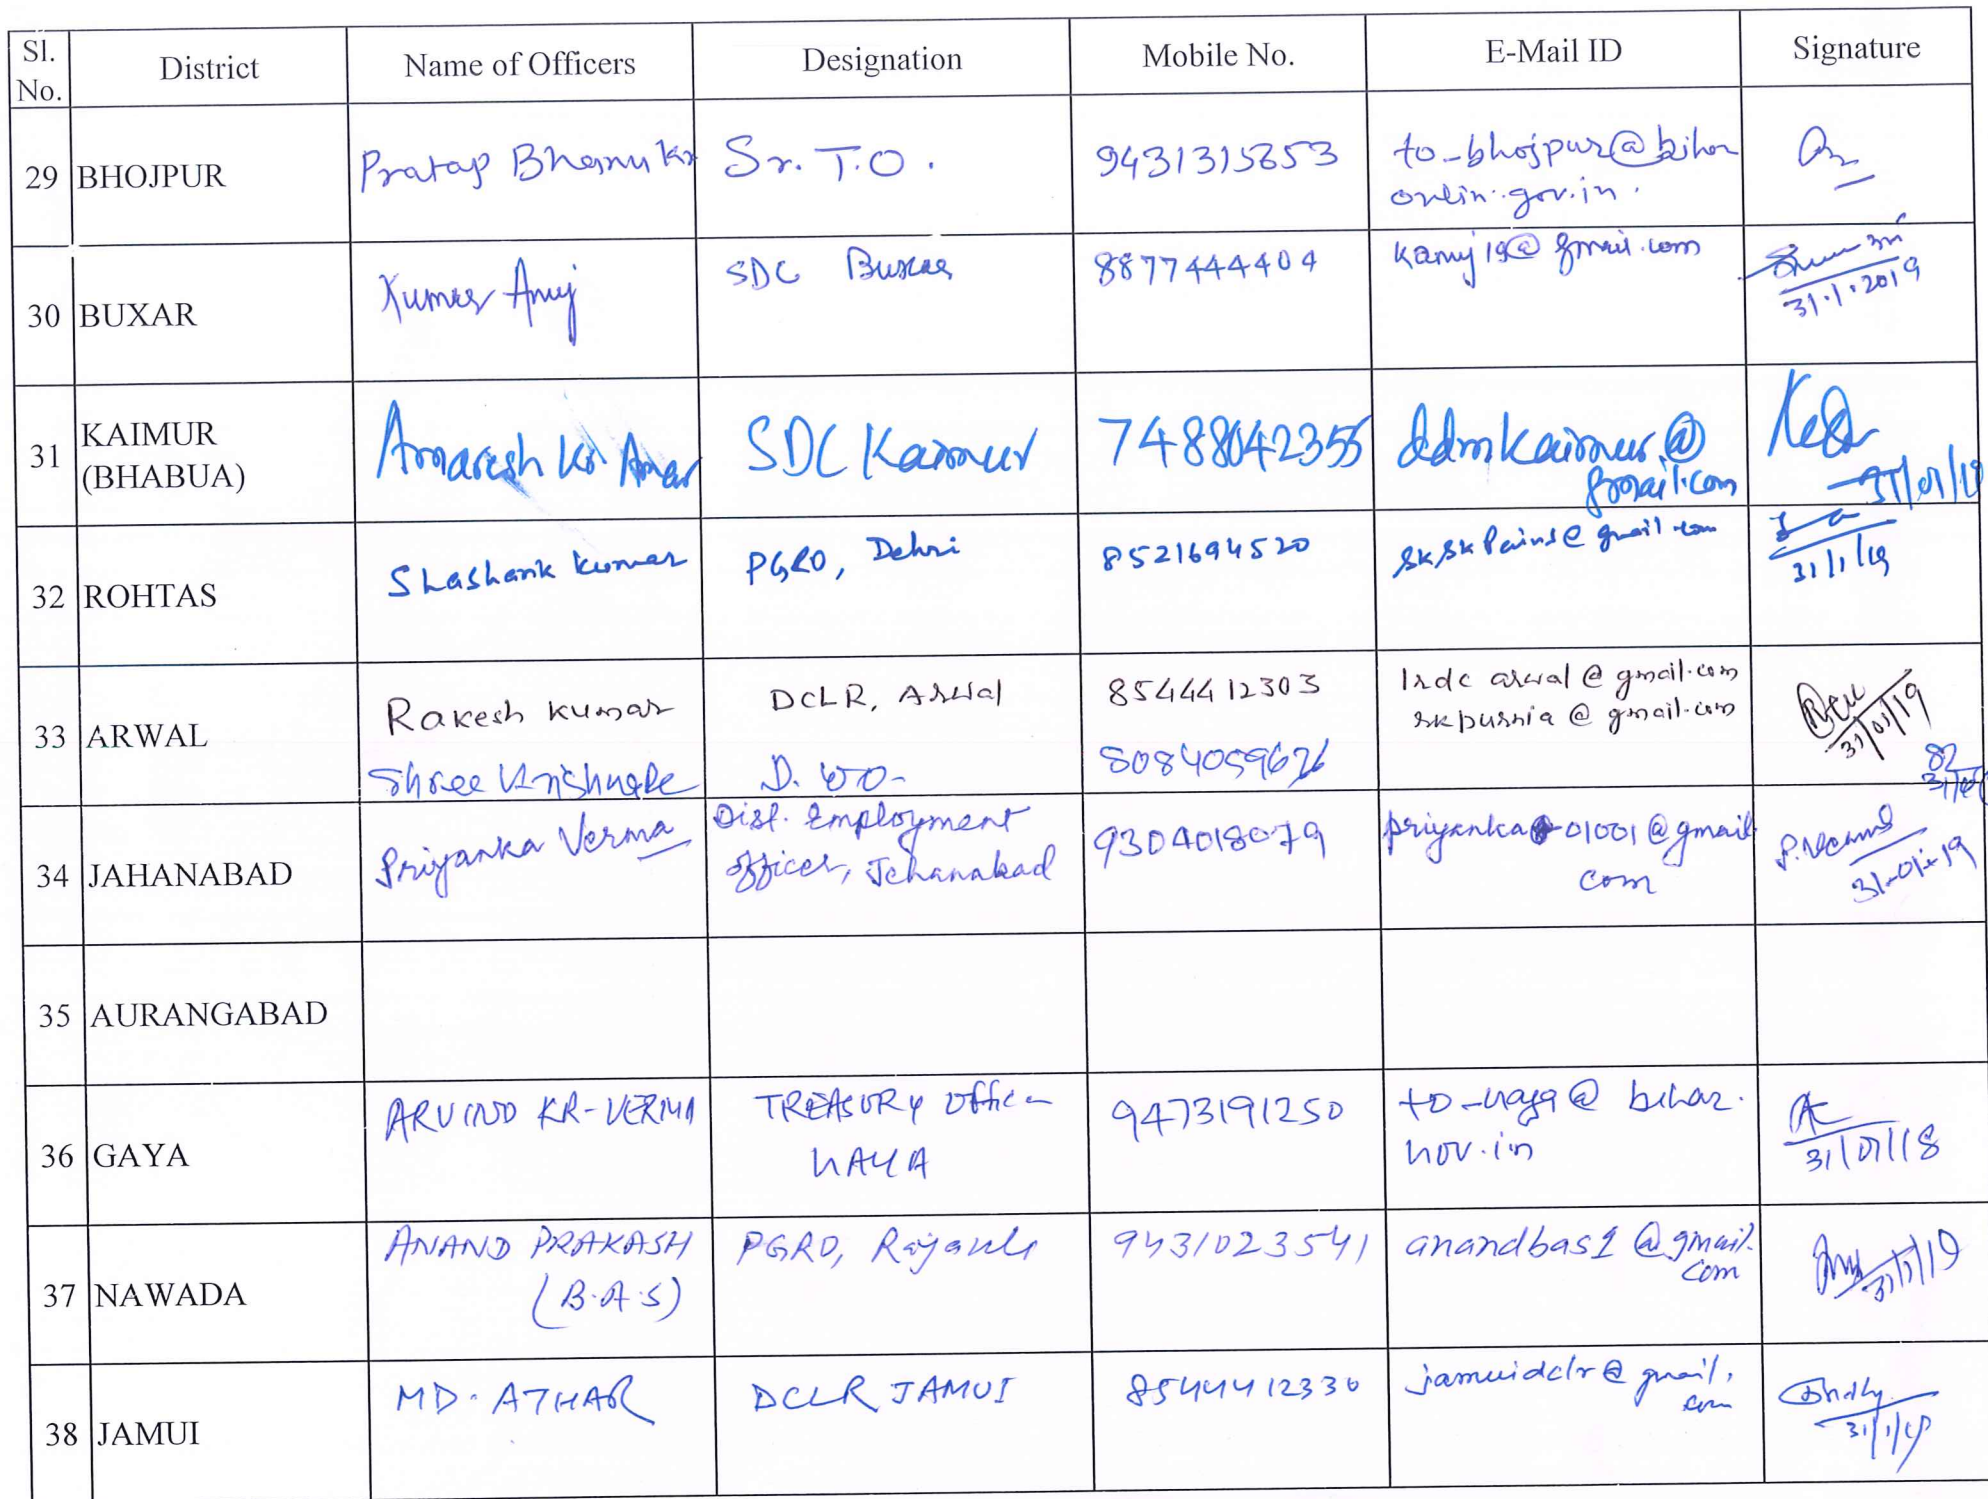 Sl. No. District Name of Officers Designation Mobile No. E-Mail ID Signature
29 BHOJPUR Pratap Bhanu Kr Sr. T.O. 9431315853 to-bhojpur@bihar
onlin.gov.in.
30 BUXAR Kumar Anuj SDC Buxar 8877444404 kanuj19@gmail.com
31.1.2019
31 KAIMUR
(BHABUA) Amaresh Kr Amar SDC Kaimur 7488042355 ddmkaimur@
gmail.com
31/01/19
32 ROHTAS Shashank Kumar PGRO, Dehri 8521694520 @gmail.com
31/1/19
33 ARWAL Rakesh Kumar DCLR, Arwal 8544412303 lrdc arwal@gmail.com
rkpurnia@gmail.com
31/01/19
Shree D. 
34 JAHANABAD Priyanka Verma Dist. Employment
officer, Jehanabad 9304018079 priyanka01001@gmail.
com
P. Verma
31-01-19
35 AURANGABAD
36 GAYA ARVIND KR-VERMA TREASURY Officer
GAYA 9473191250 to-gaya@bihar.
gov.in
31/01/18
37 NAWADA ANAND PRAKASH
(B.A.S) PGRO, Rajauli 9431023541 anandbas1@gmail.
com
31/1/19
38 JAMUI MD. ATHAR DCLR JAMUI 8544412330 jamuidclr@gmail.
com
31/1/19